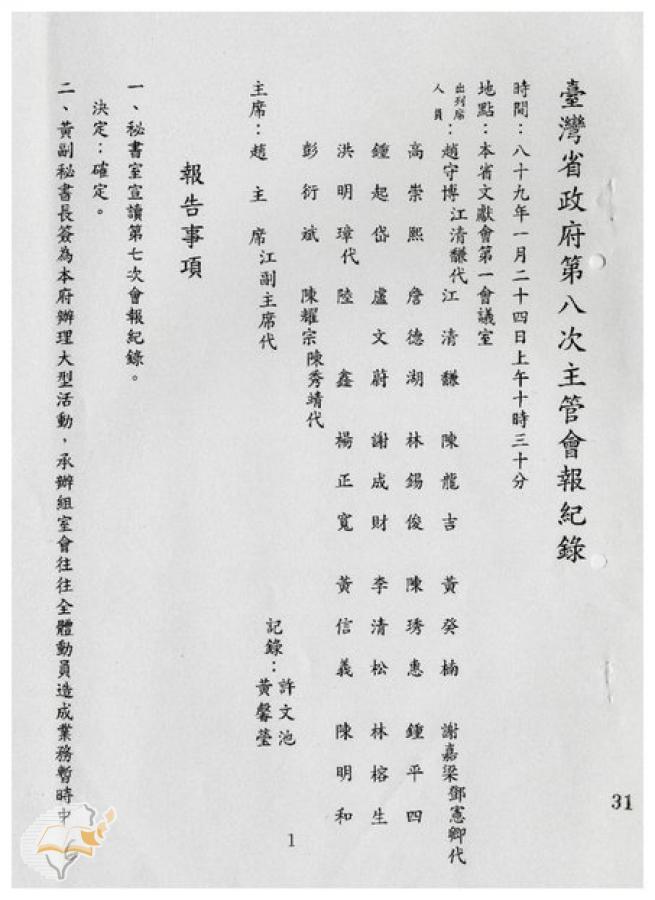 臺灣省政府第八次主管會報紀錄
時間：八十九年一月二十四日上午十時三十分
地點：本省文獻會第一會議室
出列席人員：趙守博江清馦代 江清馦 陳龍吉 黃癸楠 謝嘉梁鄧憲卿代
高崇熙 詹德湖 林錫俊 陳琇惠 鍾平四
鍾起岱 盧文蔚 謝成財 李清松 林榕生
洪明璋代 陸鑫 楊正寬 黃信義 陳明和
彭衍斌 陳耀宗陳秀靖代
主席：趙主席江副主席代 記錄：許文池 黃馨瑩
報告事項
一、秘書室宣讀第七次會報紀錄。
決定：確定。
二、黃副秘書長簽為本府辦理大型活動，承辦組室會往往全體動員造成業務暫時中
1
31